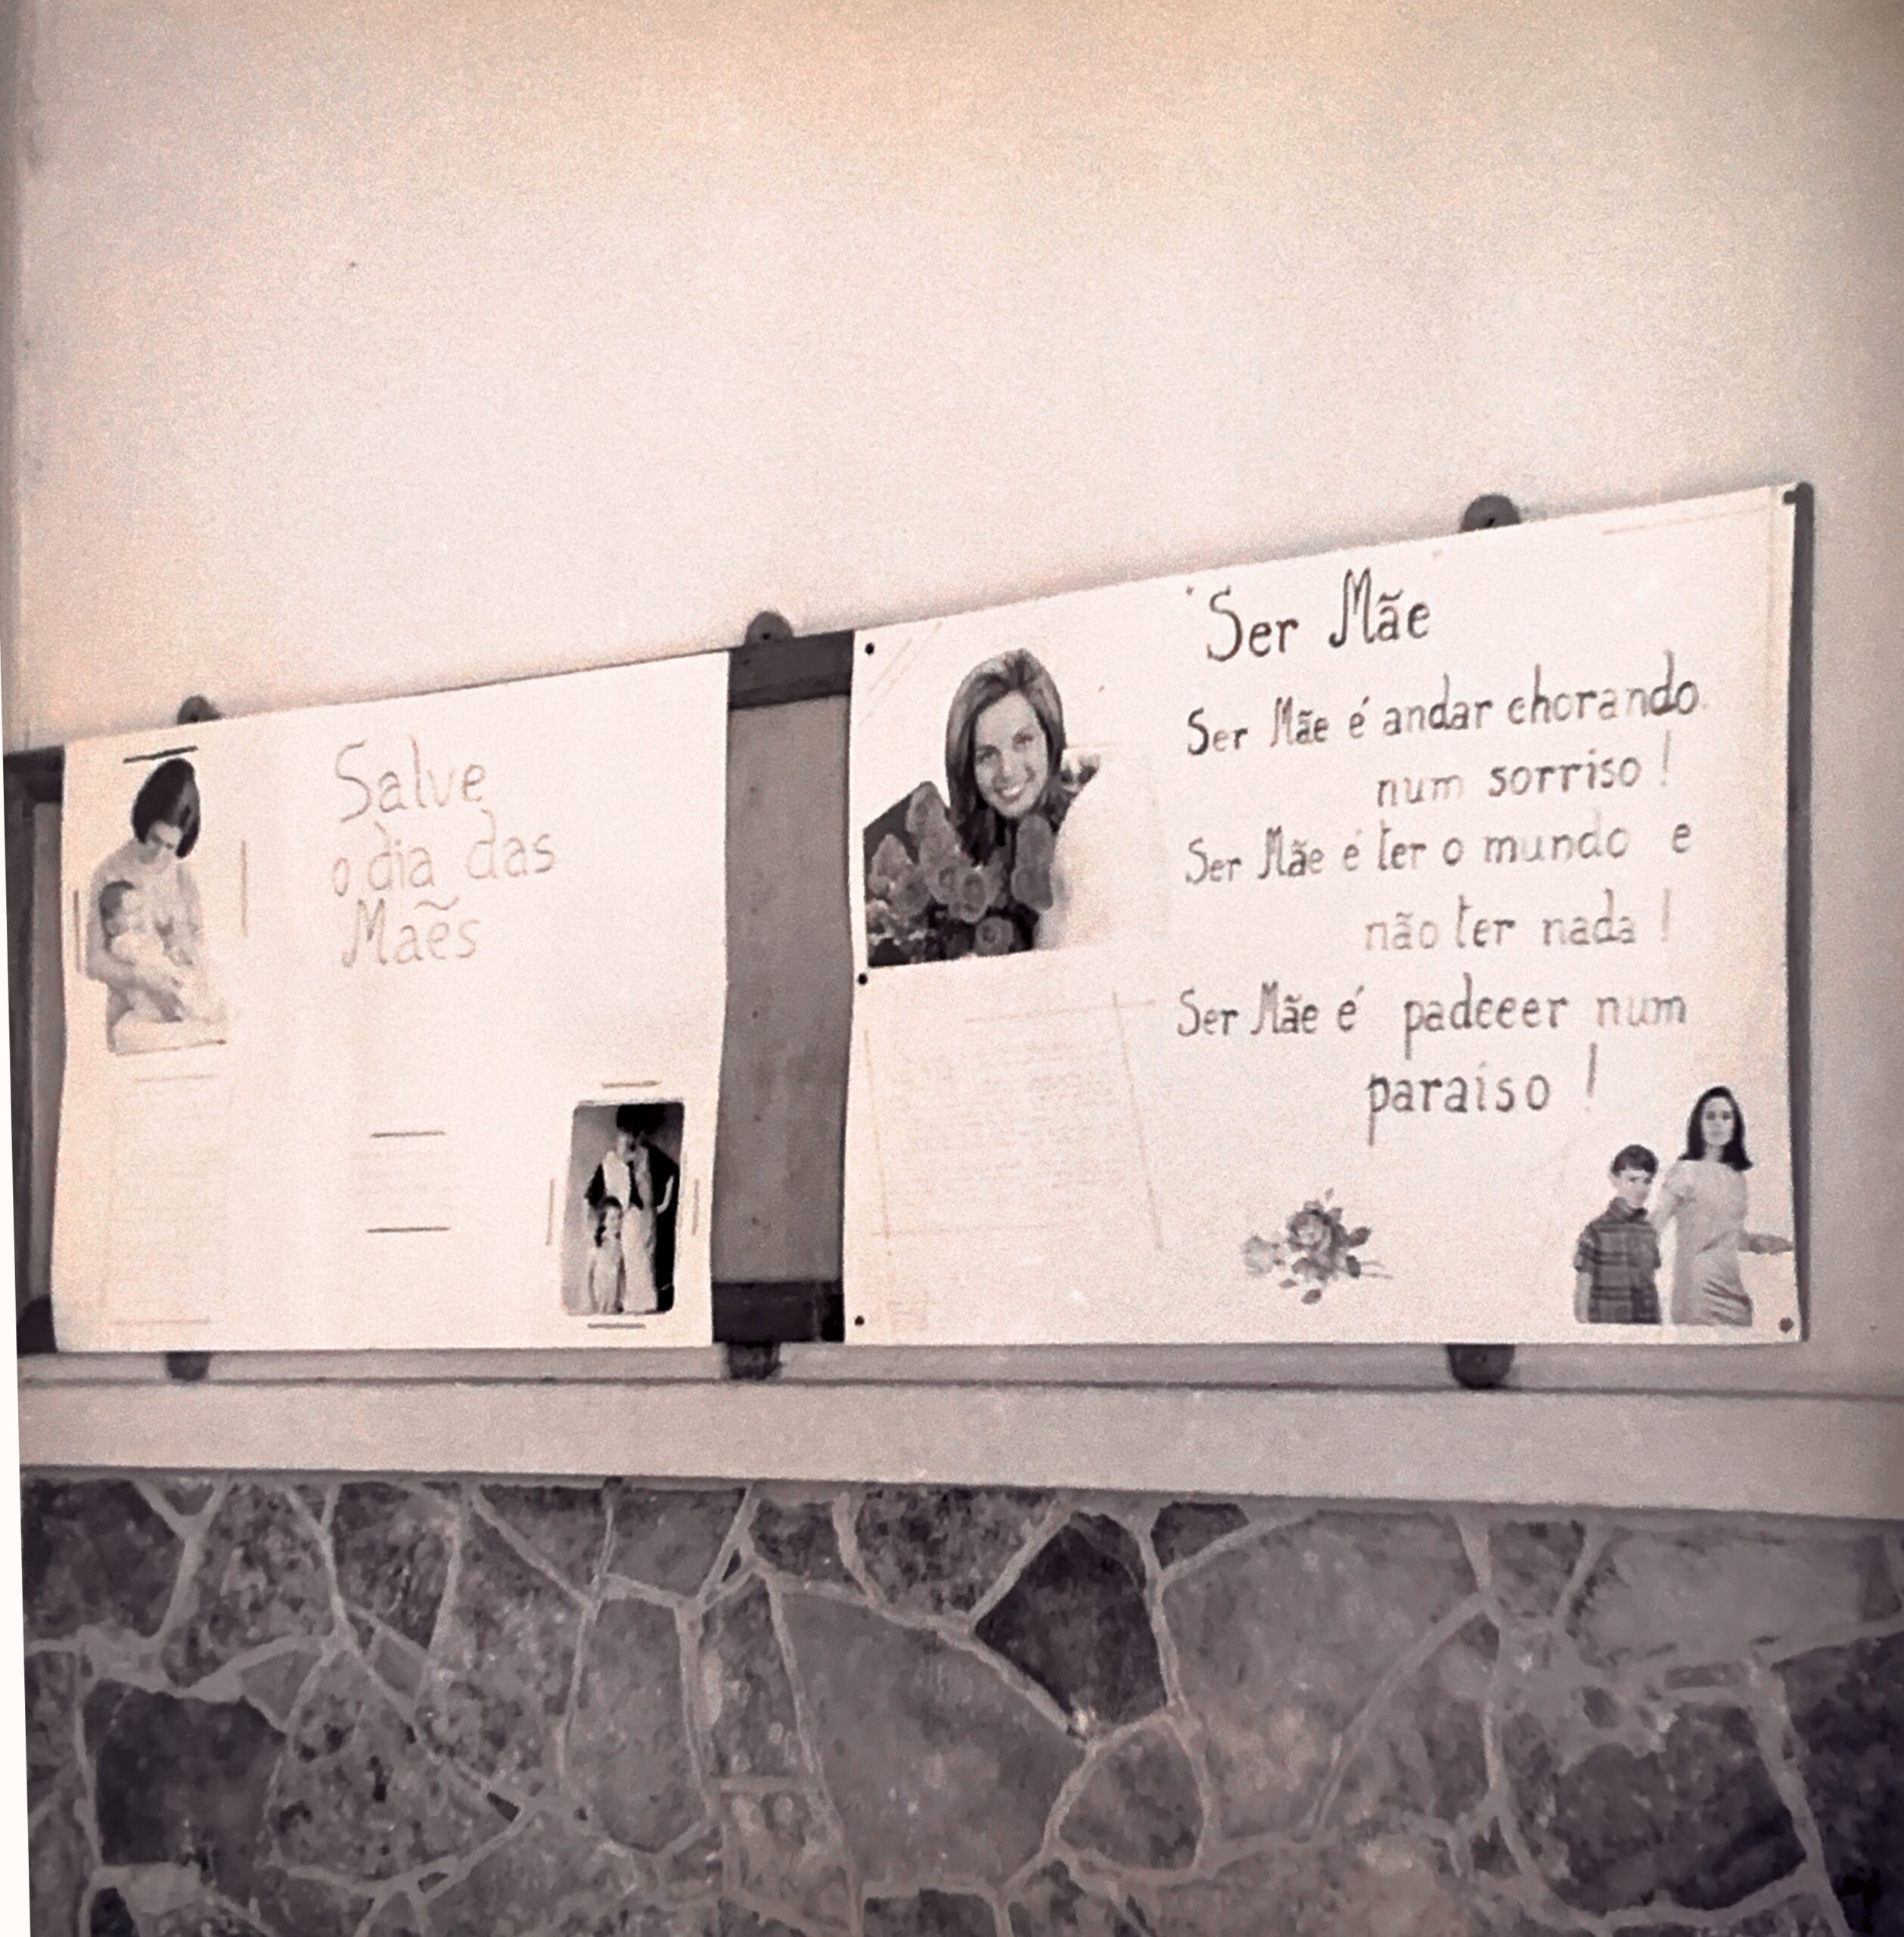 Salve
o dia das
Mães
Ser Mãe
Ser Mãe é andar chorando
num sorriso !
Ser Mãe é ter o mundo e
não ter nada !
Ser Mãe é padecer num
paraiso !